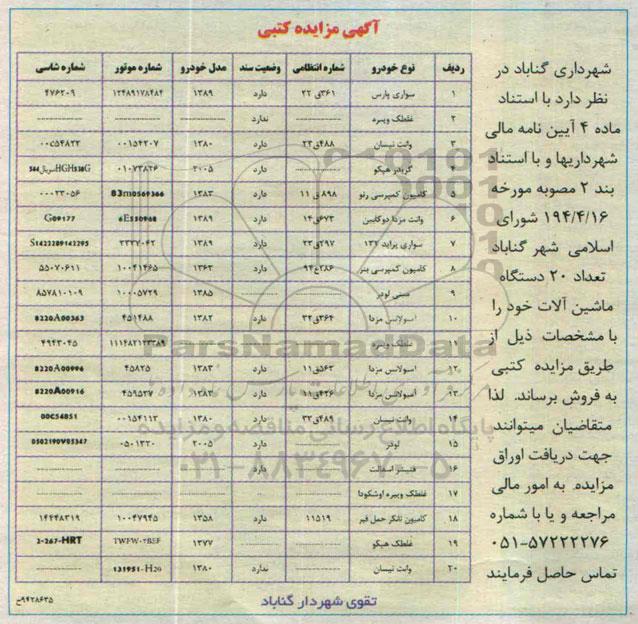 آگهی مزایده کتبی
شهرداری گناباد در
نظر دارد با استناد
ماده ۴ آیین نامه مالی
شهرداریها و با استناد
بند ۲ مصوبه مورخه
۱۹۴/۴/۱۶ شورای
اسلامی شهر گناباد
تعداد ۲۰ دستگاه
ماشین آلات خود را
با مشخصات ذیل از
طریق مزایده کتبی
به فروش برساند. لذا
متقاضیان میتوانند
جهت دریافت اوراق
مزایده به امور مالی
مراجعه و یا با شماره
۰۵۱-۵۷۲۲۲۲۷۶
تماس حاصل فرمایند
ردیف نوع خودرو شماره انتظامی وضعیت سند مدل خودرو شماره موتور شماره شاسی
۱ سواری پارس ۳۶۱ق ۲۲ دارد ۱۳۸۹ ۱۲۴۸۹۱۷۸۴۸۴ ۴۷۶۲۰۹
۲ غلطک ویبره ندارد
۳ وانت نیسان ۴۸۸ق۲۳ دارد ۱۳۸۰ ۰۰۱۵۴۲۰۷ ۰۰c۵۴۸۲۲
۴ گریدر هپکو دارد ۲۰۰۵ ۰۱۰۷۳۸۲۶
۵ کامیون کمپرسی رنو ۸۹۸ق ۱۱ دارد ۱۳۸۳ 83m0569366 ۰۰۰۲۳۰۵۶
۶ وانت مزدا دوکابین ۶۷۳ق۱۴ دارد ۱۳۸۹ 6E550968 G09177
۷ سواری پراید ۱۳۲ ۲۹۷ق۲۳ دارد ۱۳۸۹ ۳۳۳۷۰۶۲ S1422289142295
۸ کامیون کمپرسی بنز دارد ۱۳۶۳ ۱۰۰۴۱۴۶۵ ۵۵۰۷۰۶۱۱
۹ مینی لودر ۱۳۸۵ ۱۰۰۰۵۷۲۹ ۸۵۷۸۱۰۱۰۹
۱۰ آمبولانس مزدا ۳۶۴ق۳۲ دارد ۱۳۸۲ ۴۵۱۴۸۸ 8220A00363
۱۱ غلطک ویبره ۱۱۱۴۸۲۱۲۳۳۸۹ ۴۹۴۳۰۴۵
۱۲ آمبولانس مزدا ۵۶۳ق۱۱ دارد ۱۳۸۳ ۴۵۸۲۵ 8220A00996
۱۳ آمبولانس مزدا ۴۳۶ق۱۱ دارد ۱۳۸۳ ۴۵۹۵۳۷ 8220A00916
۱۴ وانت نیسان ۴۸۹ق۳۳ دارد ۱۳۸۰ ۰۰۱۵۴۱۱۳ 00C54851
۱۵ لودر دارد ۲۰۰۵ ۰۵۰۱۳۲۰ 0502190V05347
۱۶ فنیشر اسفالت دارد
۱۷ غلطک ویبره اوشکودا
۱۸ کامیون تانکر حمل قیر ۱۱۵۱۹ دارد ۱۳۵۸ ۱۰۰۴۷۹۴۵ ۱۴۴۴۸۳۱۹
۱۹ غلطک هپکو ۱۳۷۷ 2-267-HRT
۲۰ وانت نیسان ندارد ۱۳۸۰ 131951-H20
تقوی شهردار گناباد
۹۴۲۸۶۳۵خ
ParsNamadData
پایگاه اطلاع رسانی مناقصه و مزایده
۰۲۱-۸۸۳۴۹۶۷۰-۵